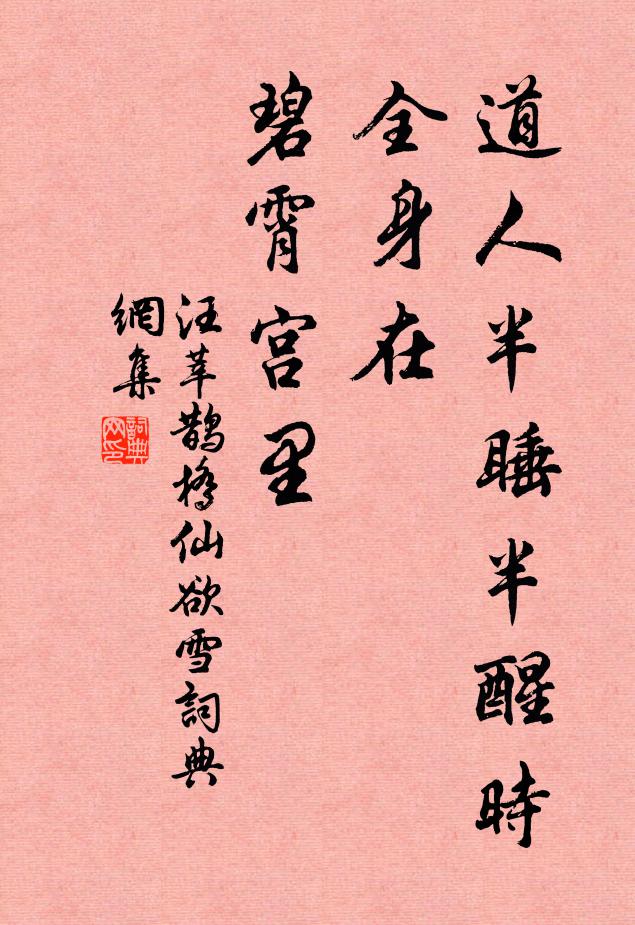 道人半睡半醒時
全身在
碧霄宮里
汪莘鵲橋仙欲雪詞典
網集
詞典
网印